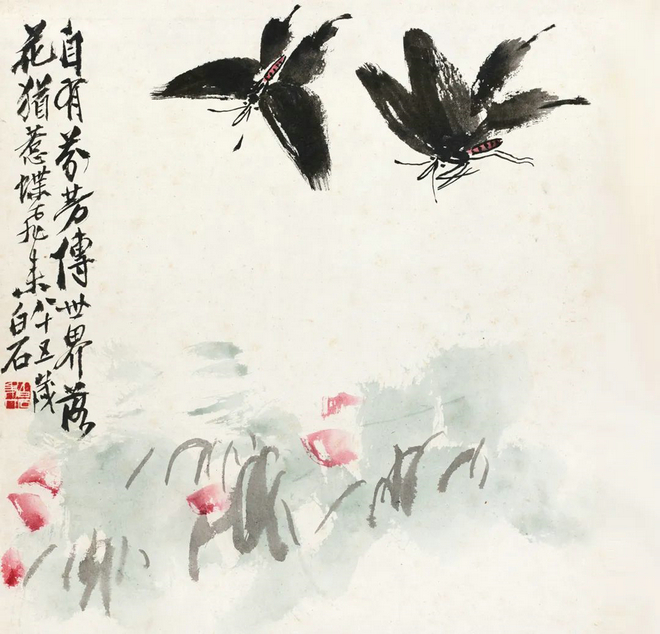 自有芬芳傳世界落
花猶惹蝶飛來
八十五歲
白石